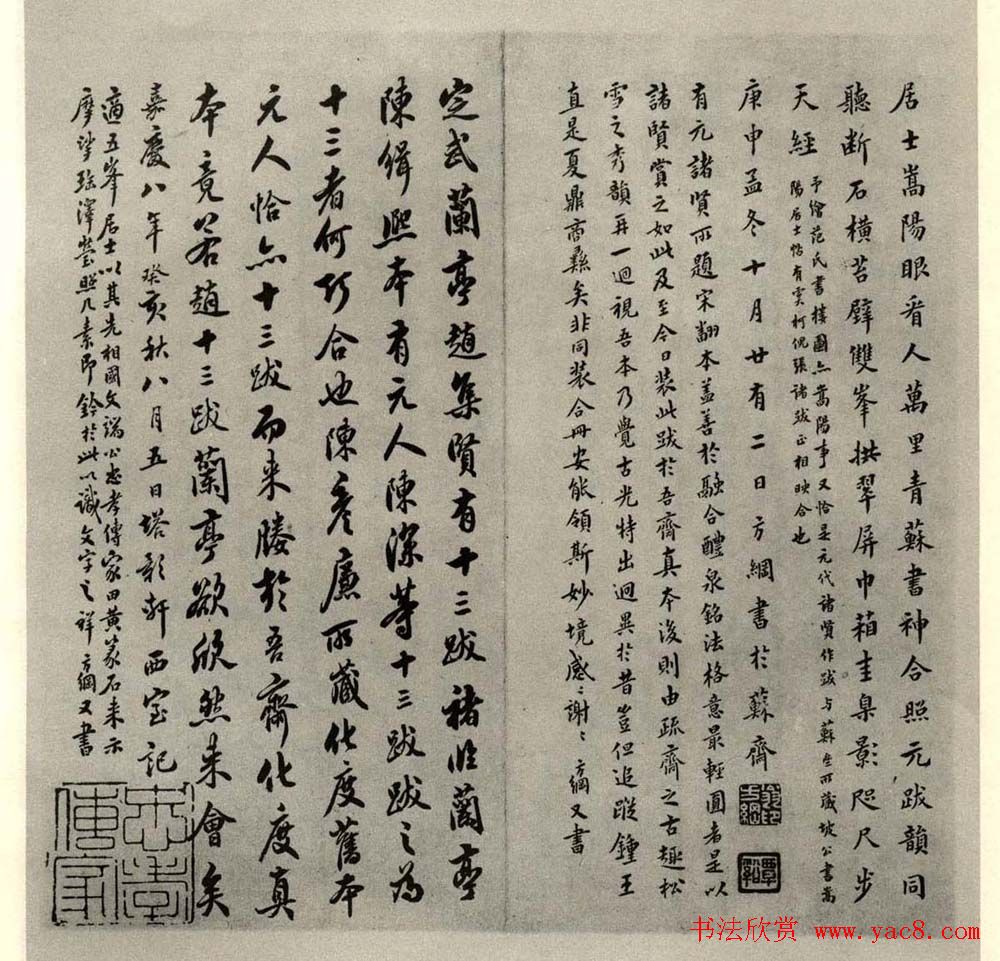 居士嵩陽眼看人萬里青蘇書神合照元跋韻同
聽斷石橫苔壁雙峯拱翠屏巾葙圭臬影咫尺步
天經
予繪范氏書樓圖亦嵩陽事又恰是元代諸賢作跋与蘇齋所藏坡公書嵩
陽居士帖有雲柯倪張諸跋正相映合也
庚申孟冬十月廿有二日方綱書於蘇齋
有元諸賢所題宋翻本蓋善於融合醴泉銘法格意最輕圓者是以
諸賢賞之如此及至今日装此跋於吾齋真本後則由疏齋之古趣松
雪之秀韻再一迴視吾本乃覺古光特出迥異於昔豈但追蹤鍾王
直是夏鼎商彝矣非同装合冊安能領斯妙境感〻謝〻方綱又書
定武蘭亭趙集賢有十三跋褚臨蘭亭
陳緝熙本有元人陳深等十三跋跋之為
十三者何巧合也陳彥廉所藏化度舊本
元人恰亦十三跋而来賸於吾齋化度真
本竟若趙十三跋蘭亭欲欣然来會矣
嘉慶八年癸亥秋八月五日塔影軒西室記
適五峯居士以其先相國文端公忠孝傳家田黃篆石来示
摩挲珍澤瑩照几素即鈐於此以識文字之祥方綱又書
忠孝傳家
书法欣赏 www.yac8.com